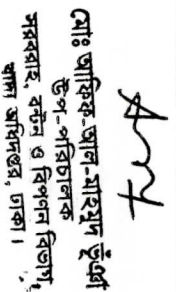 মোঃ আকিক-আল-মাহমুদ ভূঁঞা
উপ-পরিচালক
সরবরাহ, বন্টন ও বিপণন বিভাগ,
খাদ্য অধিদপ্তর, ঢাকা।